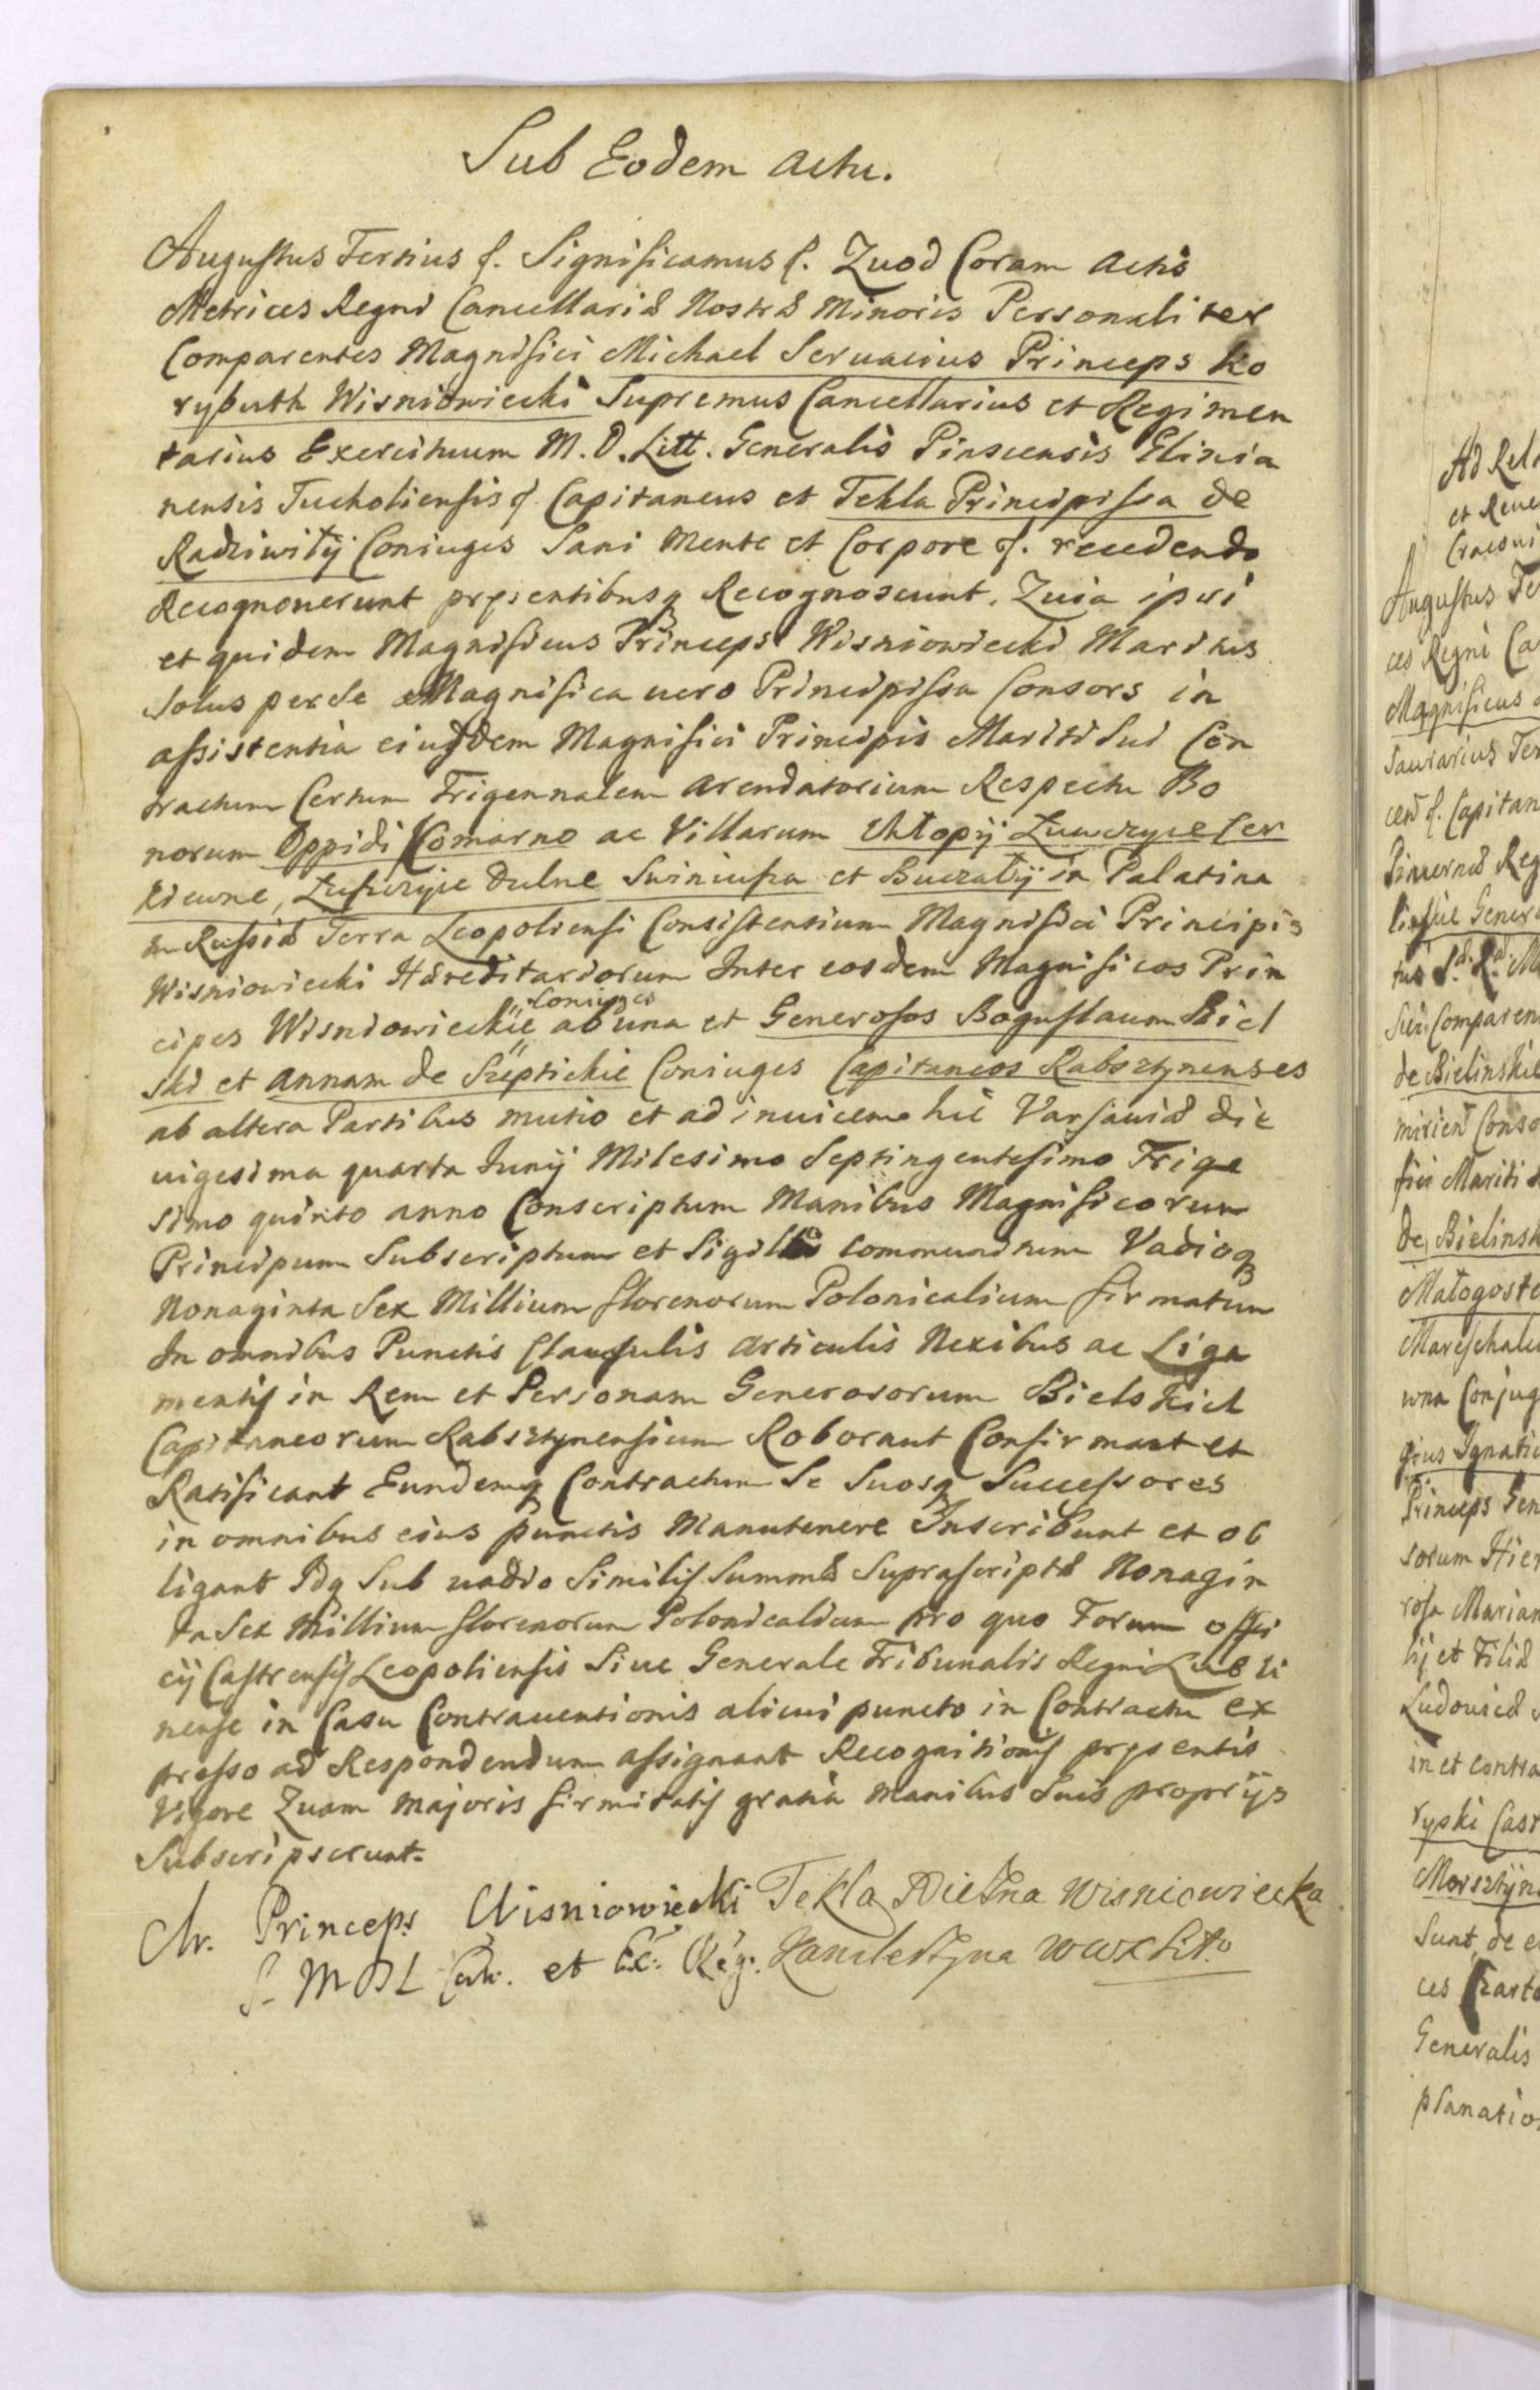 Sub Eodem Actu.
Augustus Tertius f. Significamus f. Quod Coram Actis
Metrices Regni Cancellariæ Nostræ Minoris Personaliter
Comparentes Magnifici Michael Servacius Princeps Ko
rybuth Wisniowiecki Supremus Cancellarius et Regimen
tarius Exercituum M. D. Litt. Generalis Pinscensis Glinia
nensis Tucholiensis f. Capitaneus et Tekla Principissa de
Radziwiły Coniuges Sani Mente et Corpore f. recedendo
Recognouerunt præsentibusq Recognoscunt. Quia ipsi
et quidem Magnificus Princeps Wisniowiecki Maritus
Solus per se Magnifica uero Principissa Consors in
assistentia eiusdem Magnifici Principis Mariti Sui Con
tractum Certum Trigennalem Arendatorium Respectu Bo
norum Oppidi Komarno ac Villarum Chłopy Łuwczyce Cer
kiewne, Łuszczyce Dulne Swiniusza et Buczały in Palatina
tu Russiæ Terra Leopoliensi Consistentium Magnifici Principis
Wisniowiecki Hæreditariorum Inter eosdem Magnificos Prin
Coniuges
cipes Wisniowieckie ab una et Generosos Boguslaum Biel
ski et Annam de Szeptickie Coniuges Capitaneos Rabsztynenses
ab altera Partibus mutio et ad inuicem hic Varsauiæ die
uigesima quarta Junij Milesimo Septingentesimo Trige
simo quinto anno Conscriptum Manibus Magnificorum
Principum Subscriptum et Sigillis communitum Vadioq
Nonaginta Sex Millium florenorum Polonicalium firmatum
In omnibus Punctis Clausulis Articulis Nexibus ac Liga
mentis in Rem et Personam Generosorum Bielskich
Capitaneorum Rabsztynensium Roborant Confirmant et
Ratificant Eundemq Contractum Se Suosq Successores
in omnibus eius punctis Manutenere Inscribunt et ob
ligant Idq Sub vadio Similis Summæ Suprascriptæ Nonagin
ta Sex Millium florenorum Polonicalium pro quo Forum offi
cij Castrensis Leopoliensis Siue Generale Tribunalis Regni Lubli
nense in Casu Contrauentionis alicui puncto in Contractu ex
presso ad Respondendum assignant Recognitionis præsentis
Vigore Quam Majoris firmitatis gratia Manibus Suis proprijs
Subscripserunt.
M. Princeps Wisniowiecki Tekla Xiężna Wisniowiecka
S. M D L Can. et Ex. Reg. Kanclerzyna WWX Litº
Ad Rel
et Reve
Augustus Te
ces Regni Ca
Magnificus
saurarius Ter
f. Capitan
Pincernæ Reg
Gener
Comparen
de Bielinski
Conso
Mariti
de Bielinsk
Małogost
Mareschal
una Conjug
Ignati
Princeps Gen
sorum Hier
rosa Marian
ij et Filiæ
Ludouicæ
in et contra
ryski Cast
Morsztyn
Sunt de e
ces Czarto
Generalis
planatio